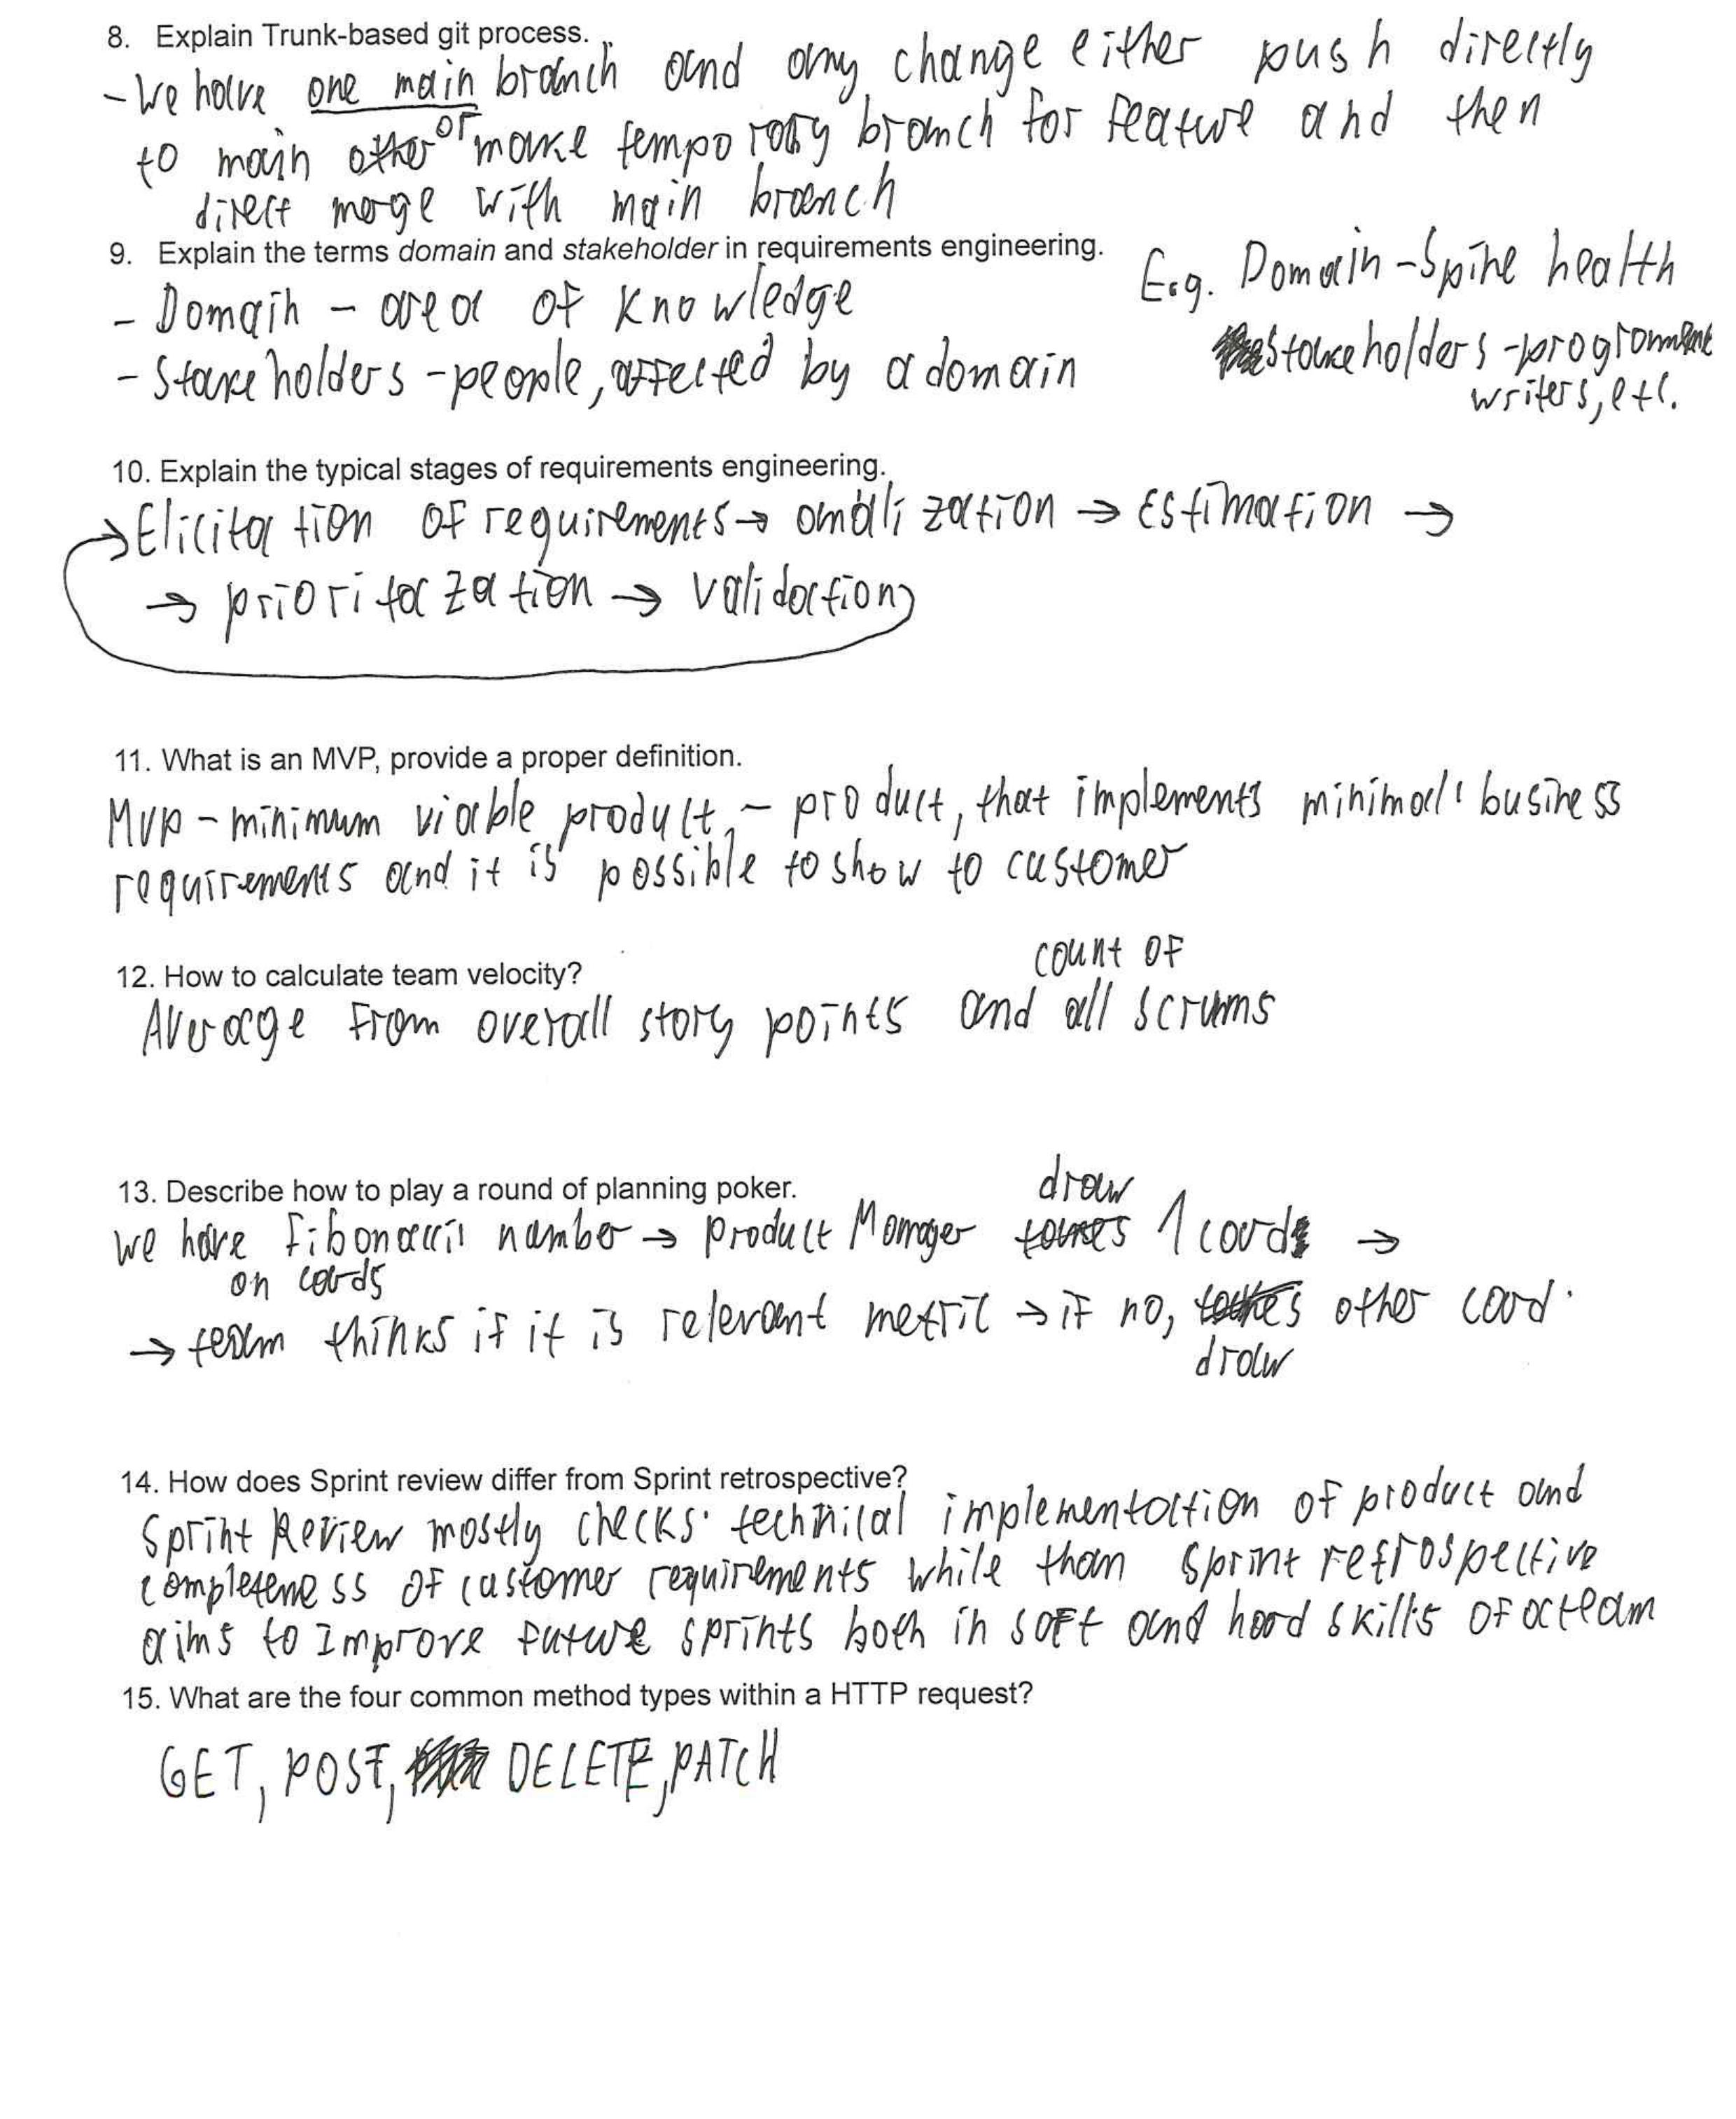 8. Explain Trunk-based git process.
- We have one main branch and any change either push directly
to main or make temporary branch for feature and then
direct merge with main branch
9. Explain the terms domain and stakeholder in requirements engineering.
- Domain - area of knowledge
- Stakeholders - people, affected by a domain
E.g. Domain - Spine health
stakeholders - programment
writers, etc.
10. Explain the typical stages of requirements engineering.
→ Elicitation of requirements → analization → Estimation →
→ prioritazation → validation
11. What is an MVP, provide a proper definition.
MVP - minimum viable product, - product, that implements minimal business
requirements and it is possible to show to customer
12. How to calculate team velocity?
count of
Average from overall story points and all scrums
13. Describe how to play a round of planning poker.
draw
we have Fibonaccii number → product Manager takes 1 card →
on cards
→ team thinks if it is relevant metric → if no, takes other card.
draw
14. How does Sprint review differ from Sprint retrospective?
Sprint Review mostly checks technical implementation of product and
completeness of customer requirements while than sprint retrospective
aims to improve future sprints both in soft and hard skills of a team
15. What are the four common method types within a HTTP request?
GET, POST, DELETE, PATCH